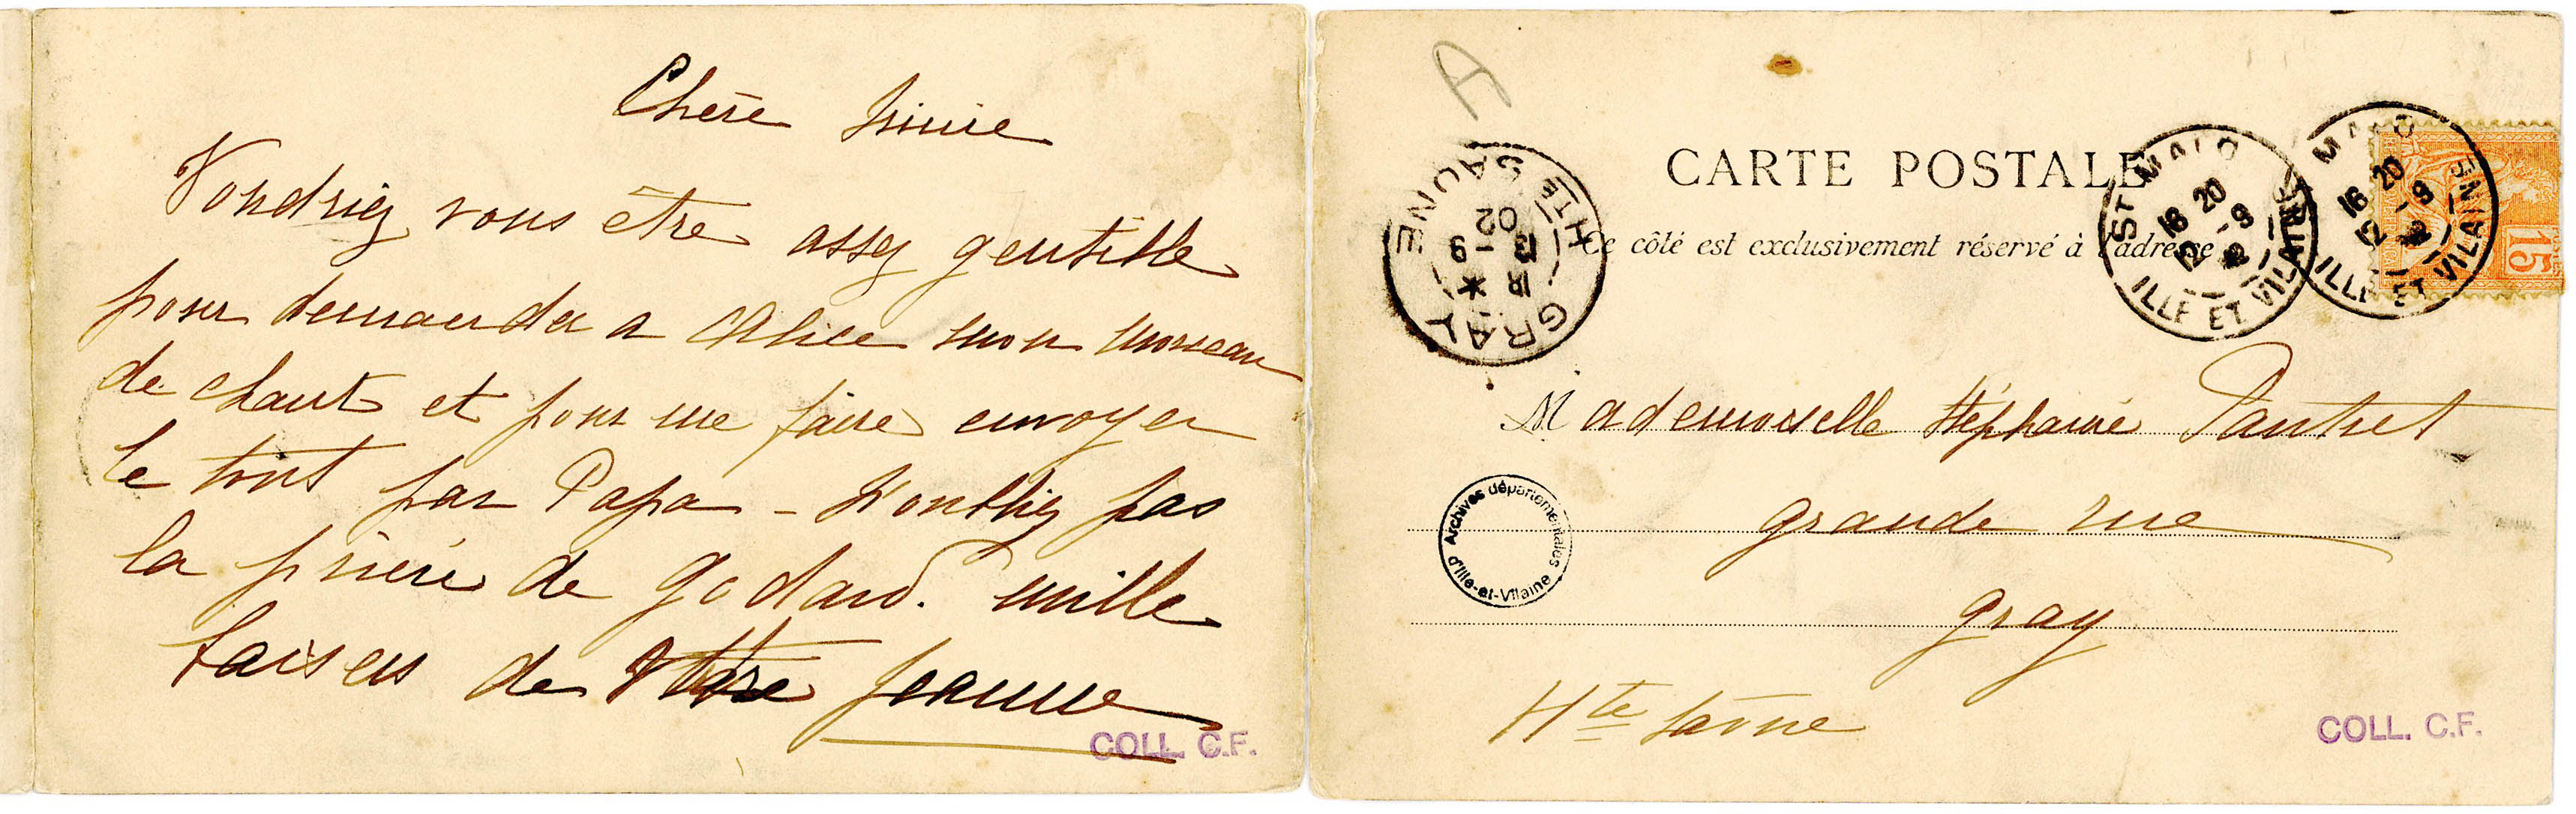 Chère
Voudriez vous être assez gentille
pour demander a Alice mon morceau
de chant et pour me faire envoyer
le tout par Papa – N'oubliez pas
la prière de Godard. mille
baisers de Votre Jeanne
COLL. C.F.
A
CARTE POSTALE
Ce côté est exclusivement réservé à l'adresse
GRAY
HTE SAONE
13 9
02
ST MALO
16 20
12 - 9
02
ILLE ET VILAINE
MALO
16 20
12 - 9
02
ILLE ET VILAINE
15
Mademoiselle Stéphanie
grande rue
Gray
Hte Saône
Archives départementales
d'Ille-et-Vilaine
COLL. C.F.